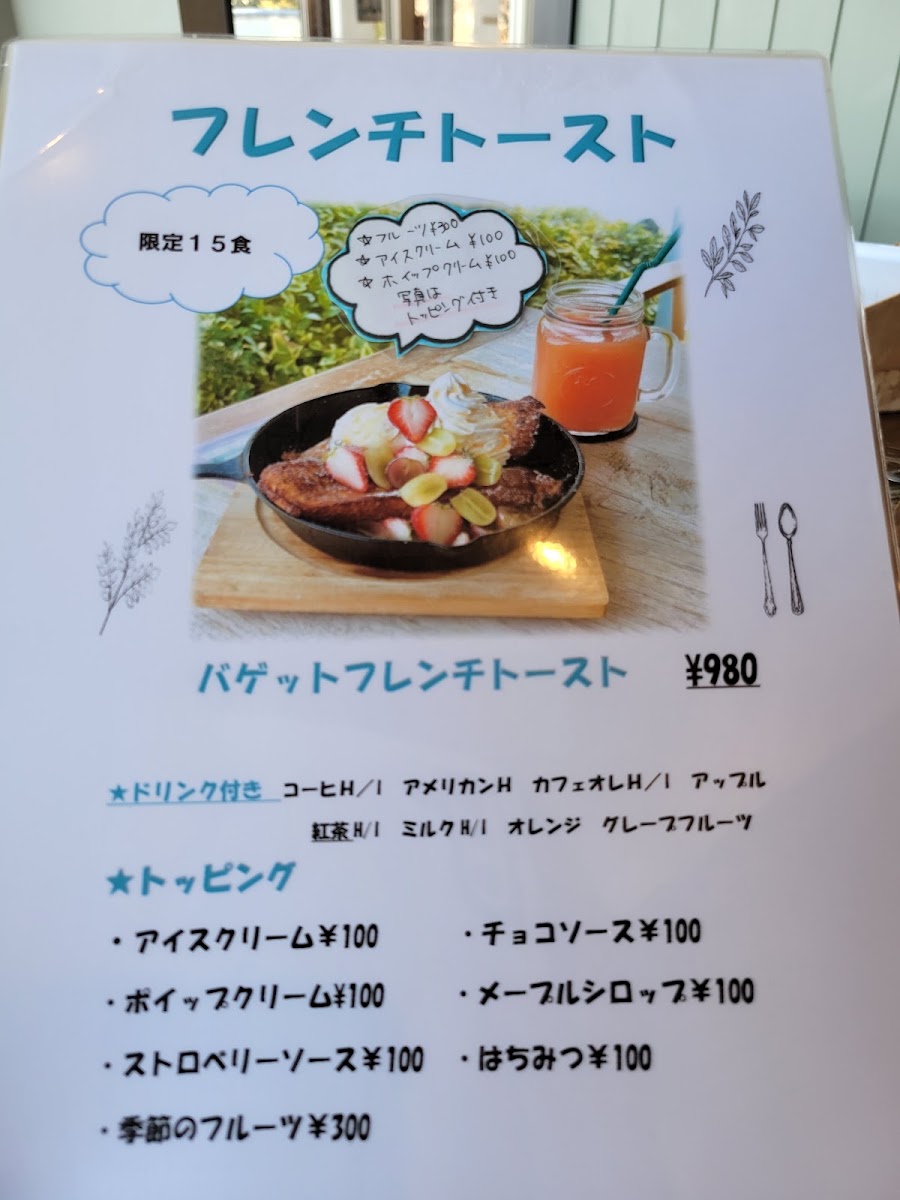 フレンチトースト
限定15食
☆フルーツ¥300
☆アイスクリーム ¥100
☆ホイップクリーム¥100
写真は
トッピング付き
バゲットフレンチトースト ¥980
★ドリンク付き コーヒH/I アメリカンH カフェオレH/I アップル
紅茶H/I ミルクH/I オレンジ グレープフルーツ
★トッピング
・アイスクリーム¥100 ・チョコソース¥100
・ポイップクリーム¥100 ・メープルシロップ¥100
・ストロベリーソース¥100 ・はちみつ¥100
・季節のフルーツ¥300